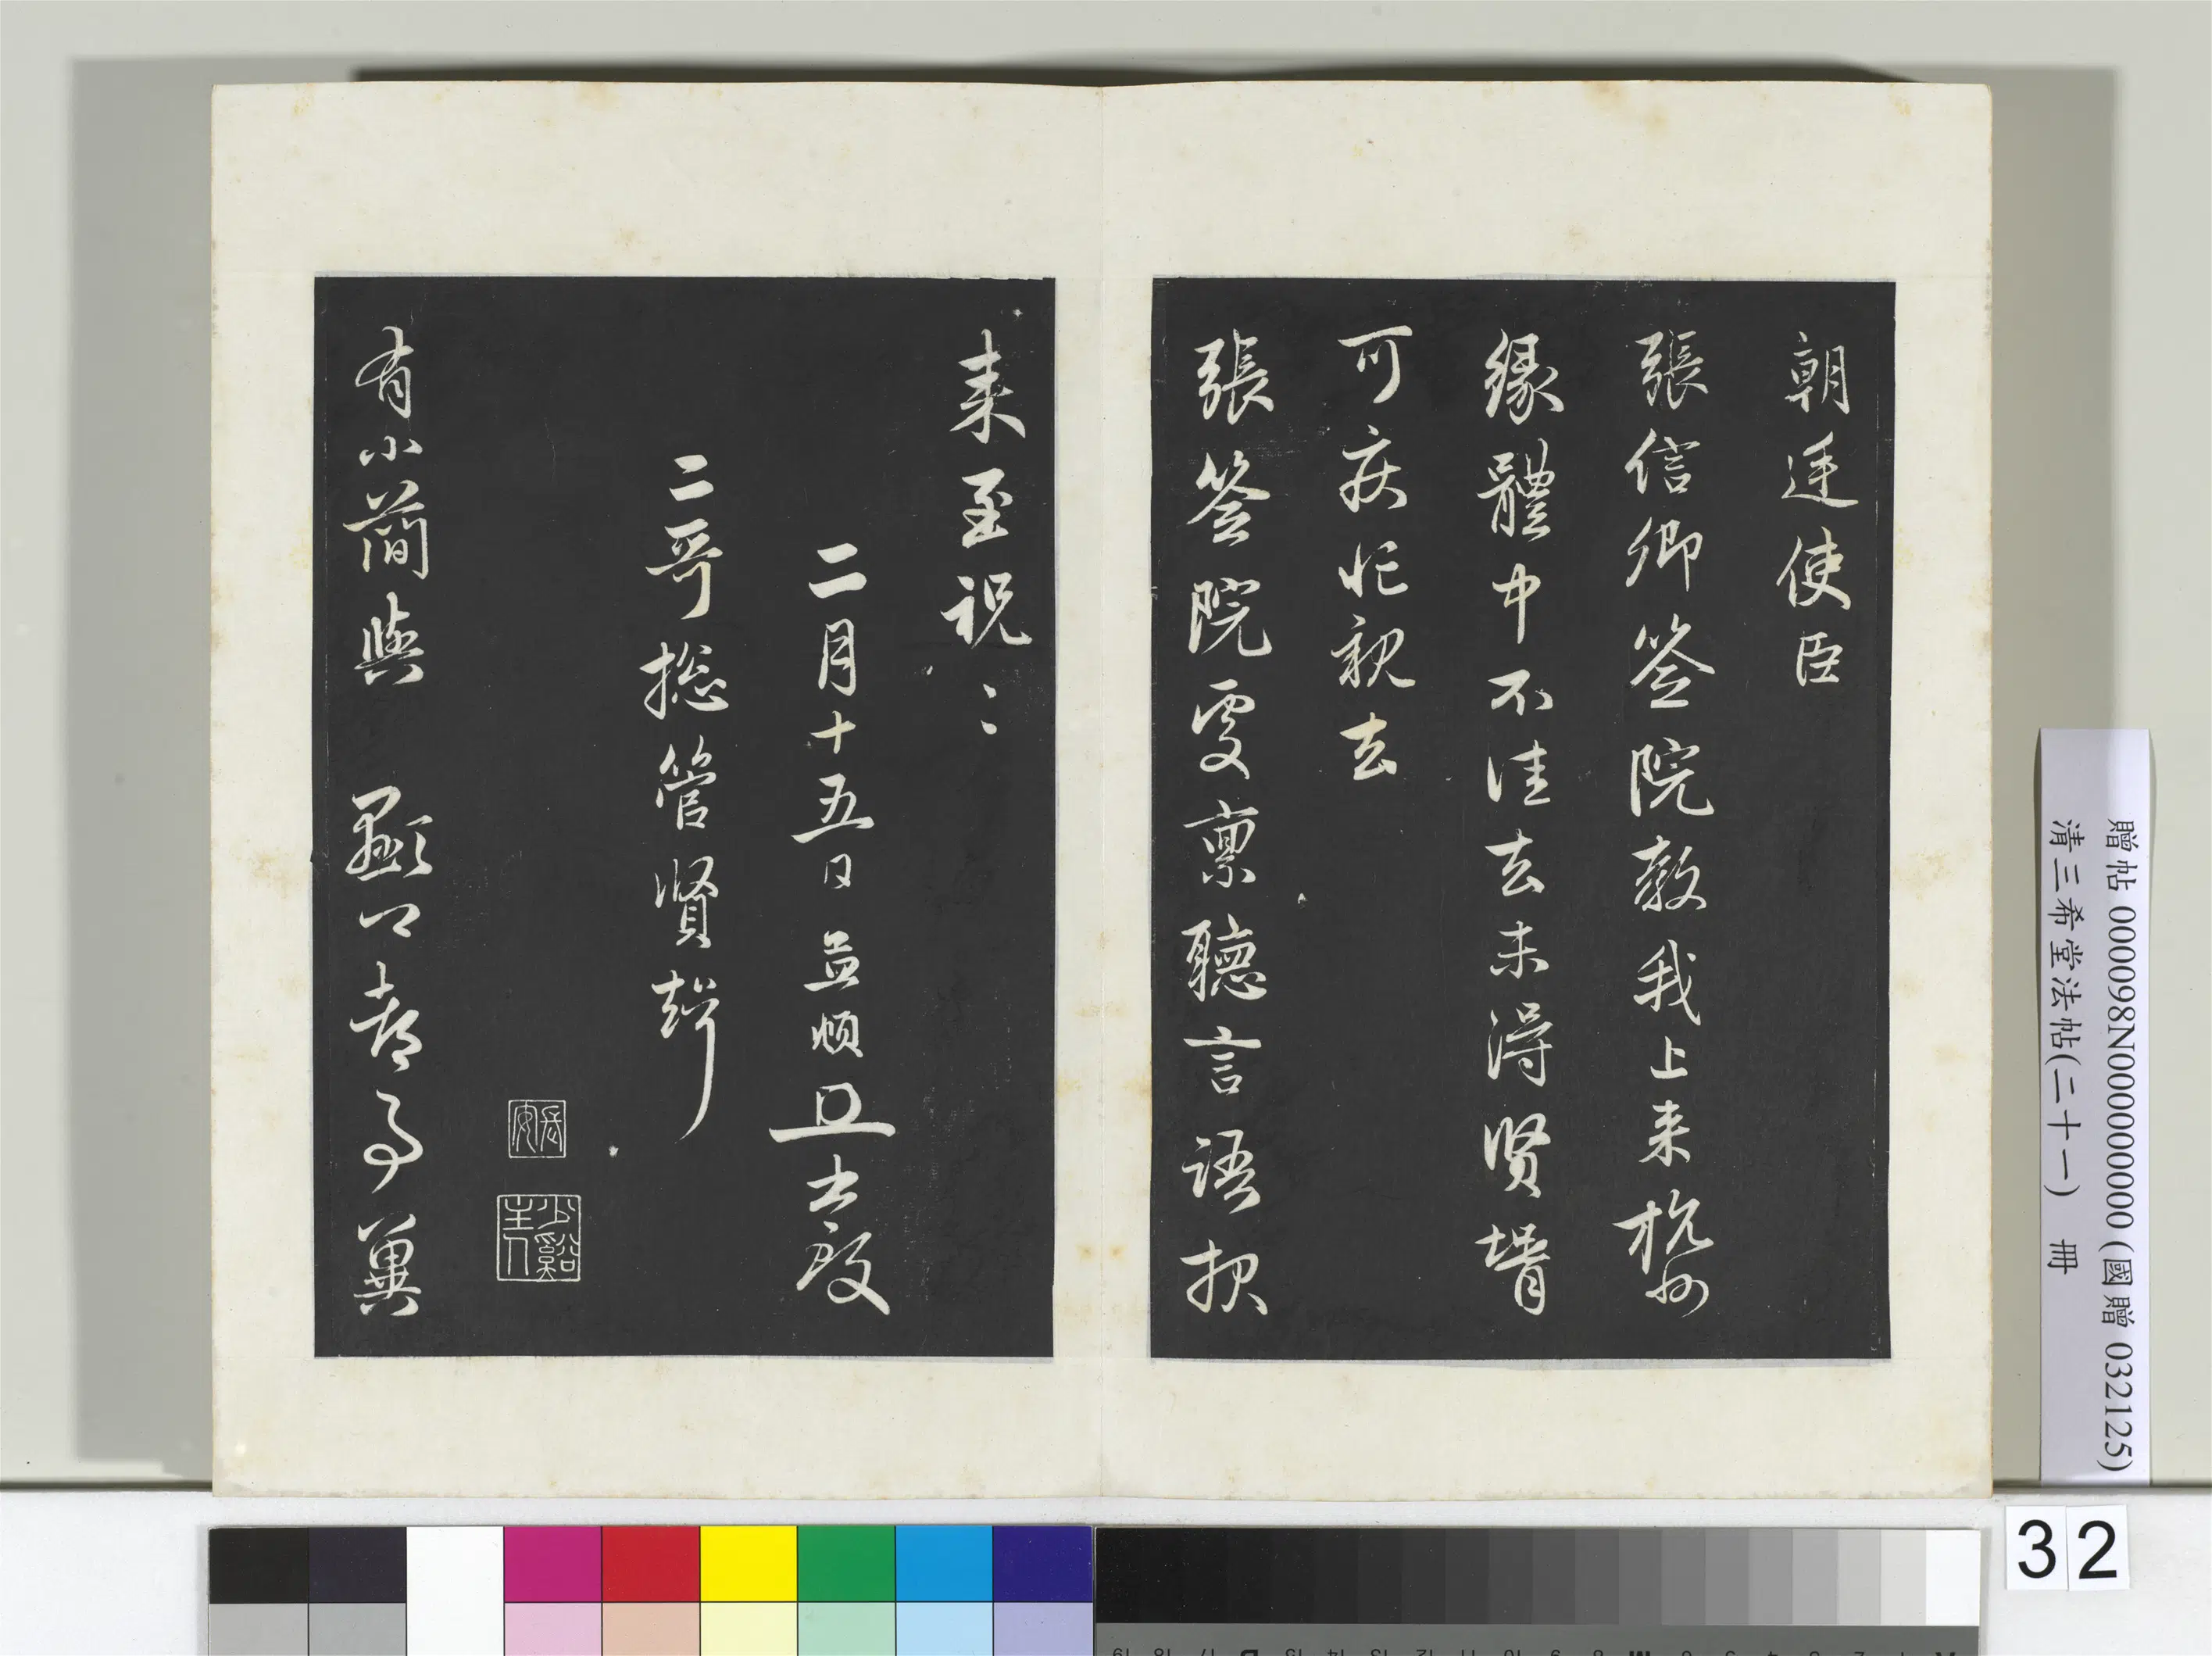 朝廷使臣
張信卿簽院教我上来杭州
緣體中不佳去未得賢壻
可疾忙親去
張簽院處稟聽言語扠
来至祝〻
二月十五日孟頫且上啟
二哥總管賢壻
有小簡與 顯卿都事冀
少谿主人
贈帖 000098N000000000 (國贈 032125)
清三希堂法帖(二十一) 冊
32